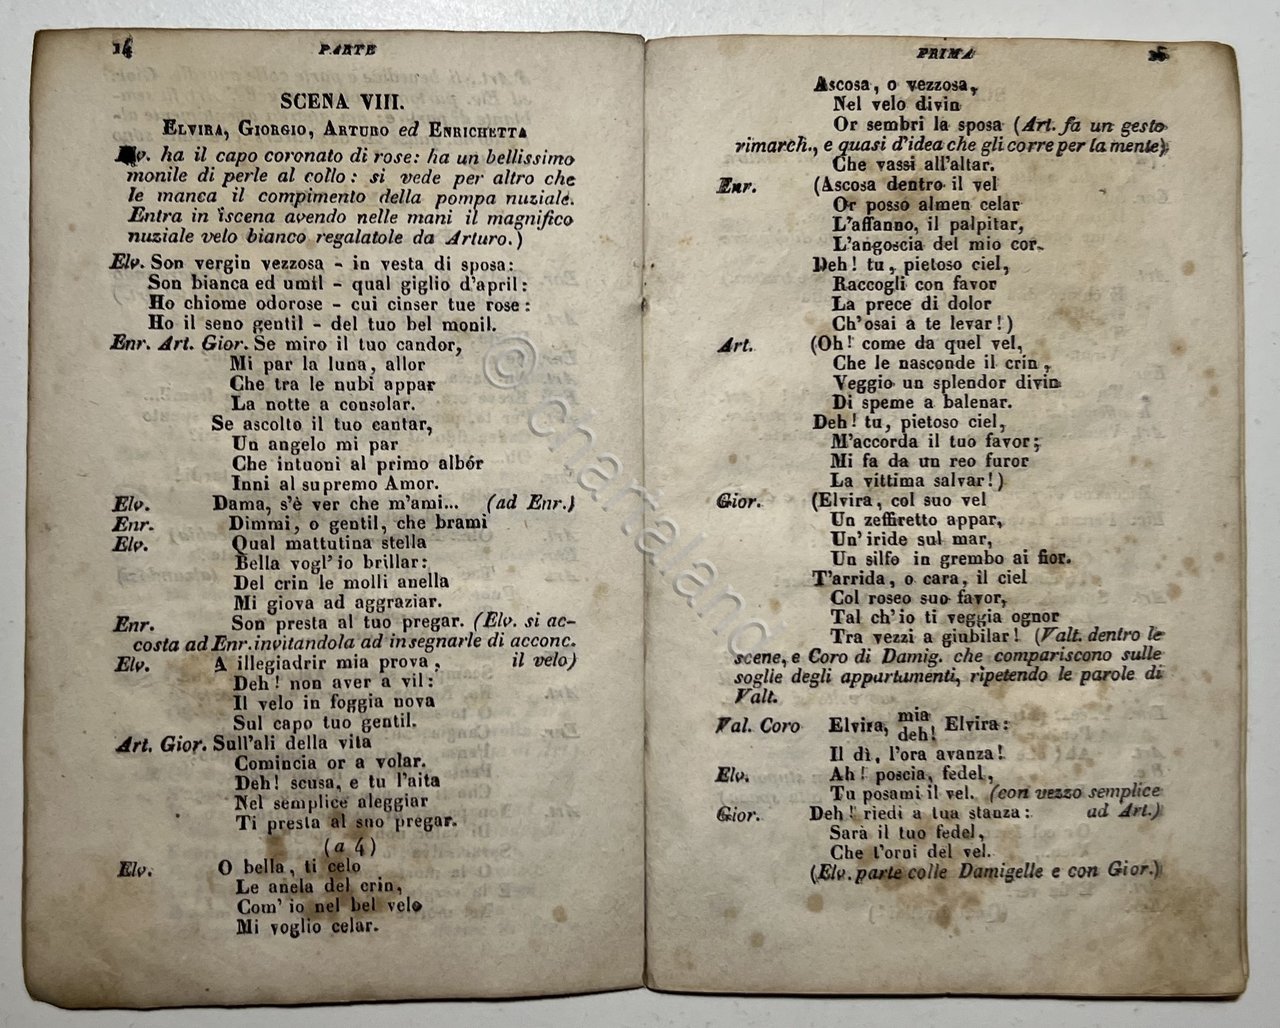 14 PARTE
SCENA VIII.
ELVIRA, GIORGIO, ARTURO ed ENRICHETTA
ha il capo coronato di rose: ha un bellissimo
monile di perle al collo: si vede per altro che
le manca il compimento della pompa nuziale.
Entra in iscena avendo nelle mani il magnifico
nuziale velo bianco regalatole da Arturo.)
Elv. Son vergin vezzosa – in vesta di sposa:
Son bianca ed umil – qual giglio d'april:
Ho chiome odorose – cui cinser tue rose:
Ho il seno gentil – del tuo bel monil.
Enr. Art. Gior. Se miro il tuo candor,
Mi par la luna, allor
Che tra le nubi appar
La notte a consolar.
Se ascolto il tuo cantar,
Un angelo mi par
Che intuoni al primo albór
Inni al supremo Amor.
Elv. Dama, s'è ver che m'ami... (ad Enr.)
Enr. Dimmi, o gentil, che brami
Elv. Qual mattutina stella
Bella vogl'io brillar:
Del crin le molli anella
Mi giova ad aggraziar.
Enr. Son presta al tuo pregar. (Elv. si ac-
costa ad Enr. invitandola ad insegnarle di acconc.
Elv. A illegiadrir mia prova, il velo)
Deh! non aver a vil:
Il velo in foggia nova
Sul capo tuo gentil.
Art. Gior. Sull'ali della vita
Comincia or a volar.
Deh! scusa, e tu l'aita
Nel semplice aleggiar
Ti presta al suo pregar.
(a 4)
Elv. O bella, ti celo
Le anela del crin,
Com' io nel bel velo
Mi voglio celar.
PRIMA
Ascosa, o vezzosa,
Nel velo divin
Or sembri la sposa (Art. fa un gesto
rimarch., e quasi d'idea che gli corre per la mente)
Che vassi all'altar.
Enr. (Ascosa dentro il vel
Or posso almen celar
L'affanno, il palpitar,
L'angoscia del mio cor.
Deh! tu, pietoso ciel,
Raccogli con favor
La prece di dolor
Ch'osai a te levar!)
Art. (Oh! come da quel vel,
Che le nasconde il crin,
Veggio un splendor divin
Di speme a balenar.
Deh! tu, pietoso ciel,
M'accorda il tuo favor;
Mi fa da un reo furor
La vittima salvar!)
Gior. (Elvira, col suo vel
Un zeffiretto appar,
Un'iride sul mar,
Un silfo in grembo ai fior.
T'arrida, o cara, il ciel
Col roseo suo favor,
Tal ch'io ti veggia ognor
Tra vezzi a giubilar! (Valt. dentro le
scene, e Coro di Damig. che compariscono sulle
soglie degli appartamenti, ripetendo le parole di
Valt.
Val. Coro Elvira, mia Elvira:
deh!
Il dì, l'ora avanza!
Elv. Ah! poscia, fedel,
Tu posami il vel. (con vezzo semplice
Gior. Deh! riedi a tua stanza: ad Art.)
Sarà il tuo fedel,
Che t'orni del vel.
(Elv. parte colle Damigelle e con Gior.)
© chartaland